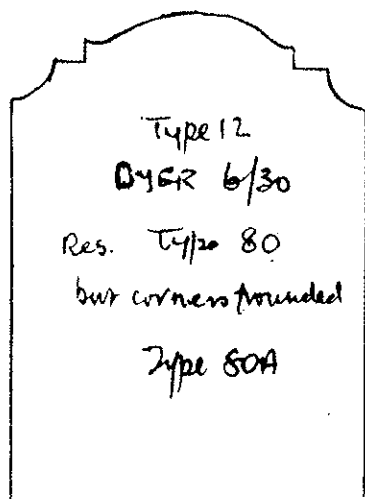 Type 12
DYER 6/30
Res. Type 80
but corners rounded
Type 80A